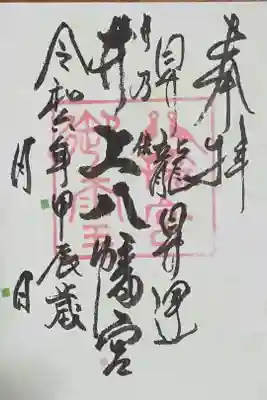 奉拝
昇り龍昇運
井上八幡宮
令和六年甲辰歳
月 日
八幡宮